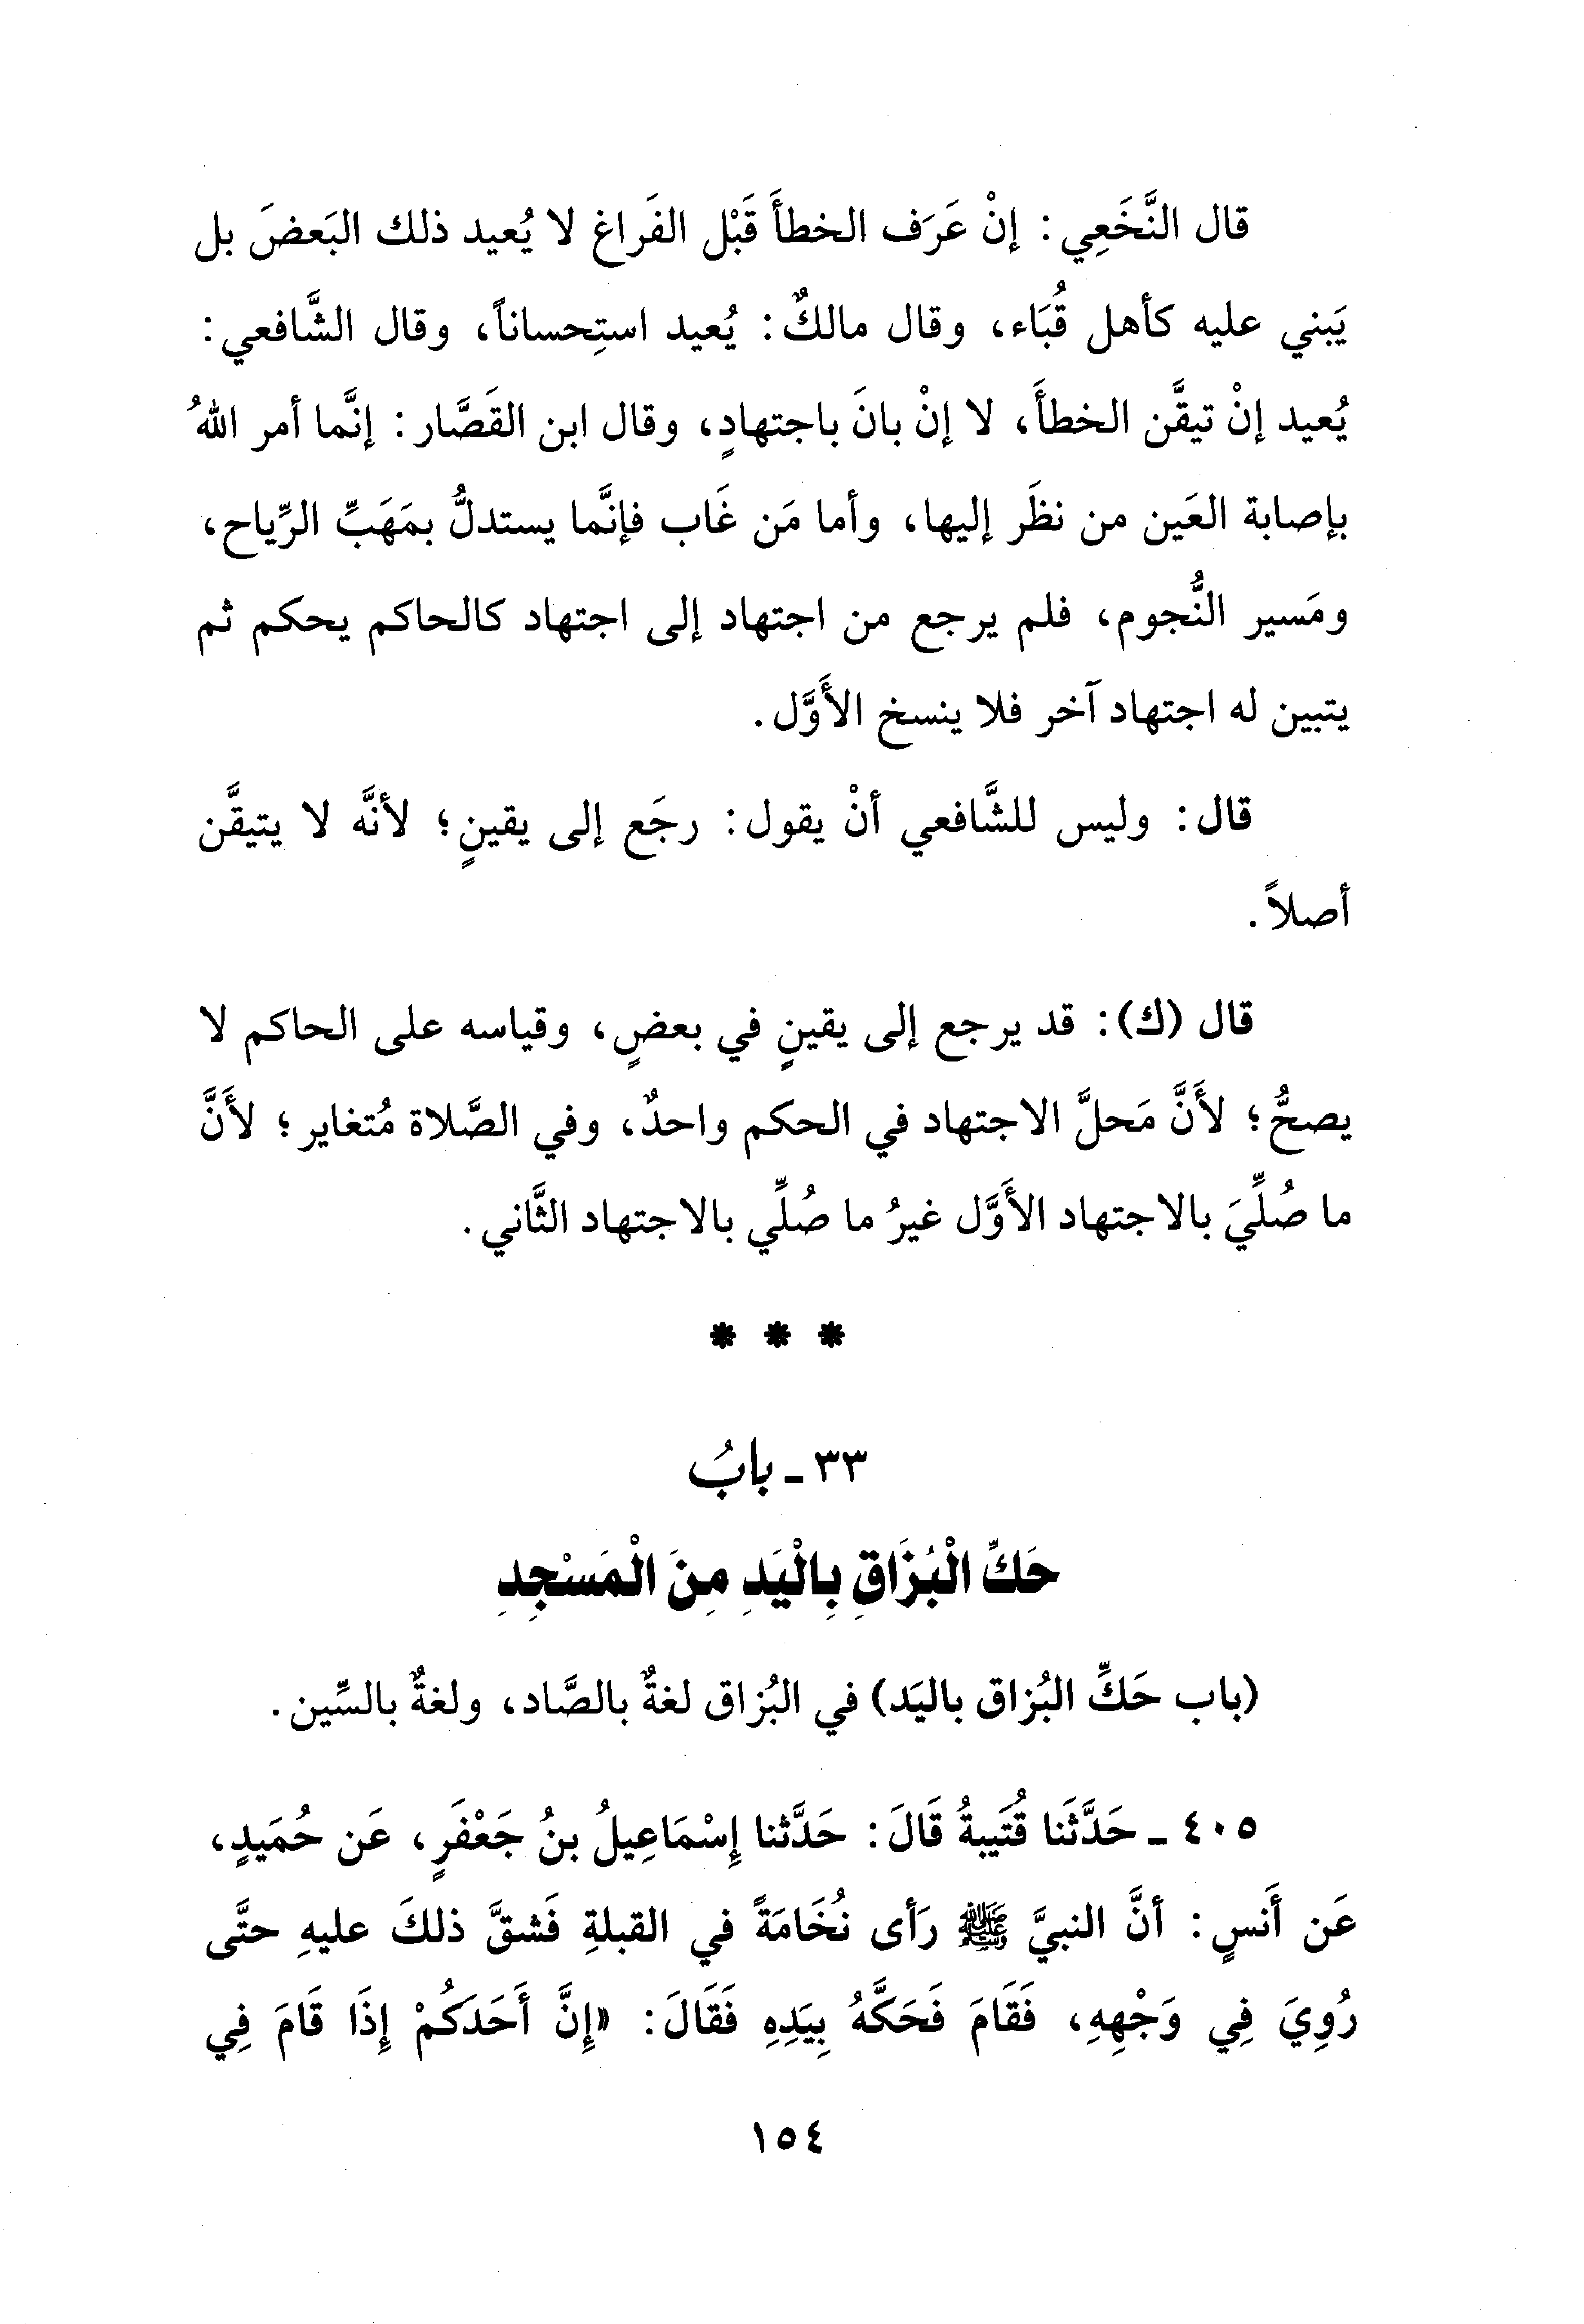 قال النَّخَعِي: إنْ عَرَف الخطأَ قَبْل الفَراغ لا يُعيد ذلك البَعضَ بل
يَبني عليه كأهل قُبَاء، وقال مالكٌ: يُعيد استِحساناً، وقال الشَّافعي:
يُعيد إنْ تيقَّن الخطأَ، لا إنْ بانَ باجتهادٍ، وقال ابن القَصَّار: إنَّما أمر اللهُ
بإصابة العَين من نظَر إليها، وأما مَن غَاب فإنَّما يستدلُّ بمَهَبِّ الرِّياح،
ومَسير النُّجوم، فلم يرجع من اجتهاد إلى اجتهاد كالحاكم يحكم ثم
يتبين له اجتهاد آخر فلا ينسخ الأَوَّل.
قال: وليس للشَّافعي أنْ يقول: رجَع إلى يقينٍ؛ لأنَّه لا يتيقَّن
أصلاً.
قال (ك): قد يرجع إلى يقينٍ في بعضٍ، وقياسه على الحاكم لا
يصحُّ؛ لأَنَّ مَحلَّ الاجتهاد في الحكم واحدٌ، وفي الصَّلاة مُتغاير؛ لأَنَّ
ما صُلِّيَ بالاجتهاد الأَوَّل غيرُ ما صُلِّي بالاجتهاد الثَّاني.
* * *
٣٣ - بابُ
حَكِّ الْبُزَاقِ بِالْيَدِ مِنَ الْمَسْجِدِ
(باب حَكِّ البُزاق باليَد) في البُزاق لغةٌ بالصَّاد، ولغةٌ بالسِّين.
٤٠٥ - حَدَّثَنا قُتَيبةُ قَالَ: حَدَّثنا إِسْمَاعِيلُ بنُ جَعْفَرٍ، عَن حُمَيدٍ،
عَن أَنسٍ: أنَّ النبيَّ ﷺ رَأى نُخَامَةً في القبلةِ فَشقَّ ذلكَ عليهِ حتَّى
رُوِيَ فِي وَجْهِهِ، فَقَامَ فَحَكَّهُ بِيَدِهِ فَقَالَ: «إِنَّ أَحَدَكُمْ إِذَا قَامَ فِي
١٥٤